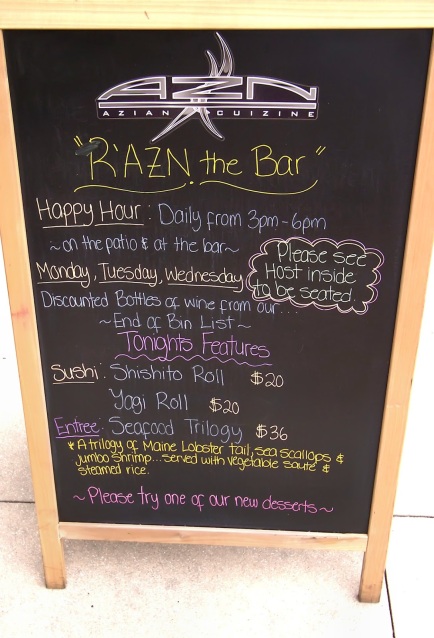 AZN
AZIAN CUIZINE
"R'AZN the Bar"
Happy Hour: Daily from 3pm-6pm
~on the patio & at the bar~
Please see
Host inside
to be seated.
Monday, Tuesday, Wednesday
Discounted Bottles of wine from our...
~End of Bin List~
Tonights Features
Sushi: Shishito Roll $20
Yagi Roll $20
Entree: Seafood Trilogy $36
*A trilogy of Maine Lobster tail, sea scallops &
jumbo shrimp...served with vegetable sauté &
steamed rice.
~Please try one of our new desserts~